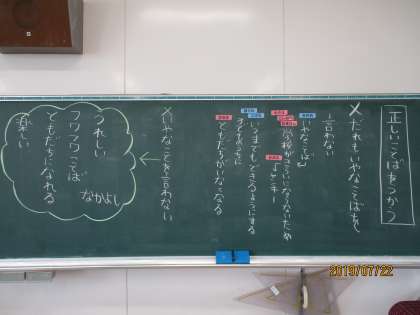 正しいことばをつかう
×だれもいやなことばをし
言わない
いやなことば
学校がきらいにならないため
いつまでもできるようにする
ともだちがいなくなる
×いやなことを言わない
うれしい
フワフワことば
なかよし
ともだちになれる
楽しい
2019/07/22